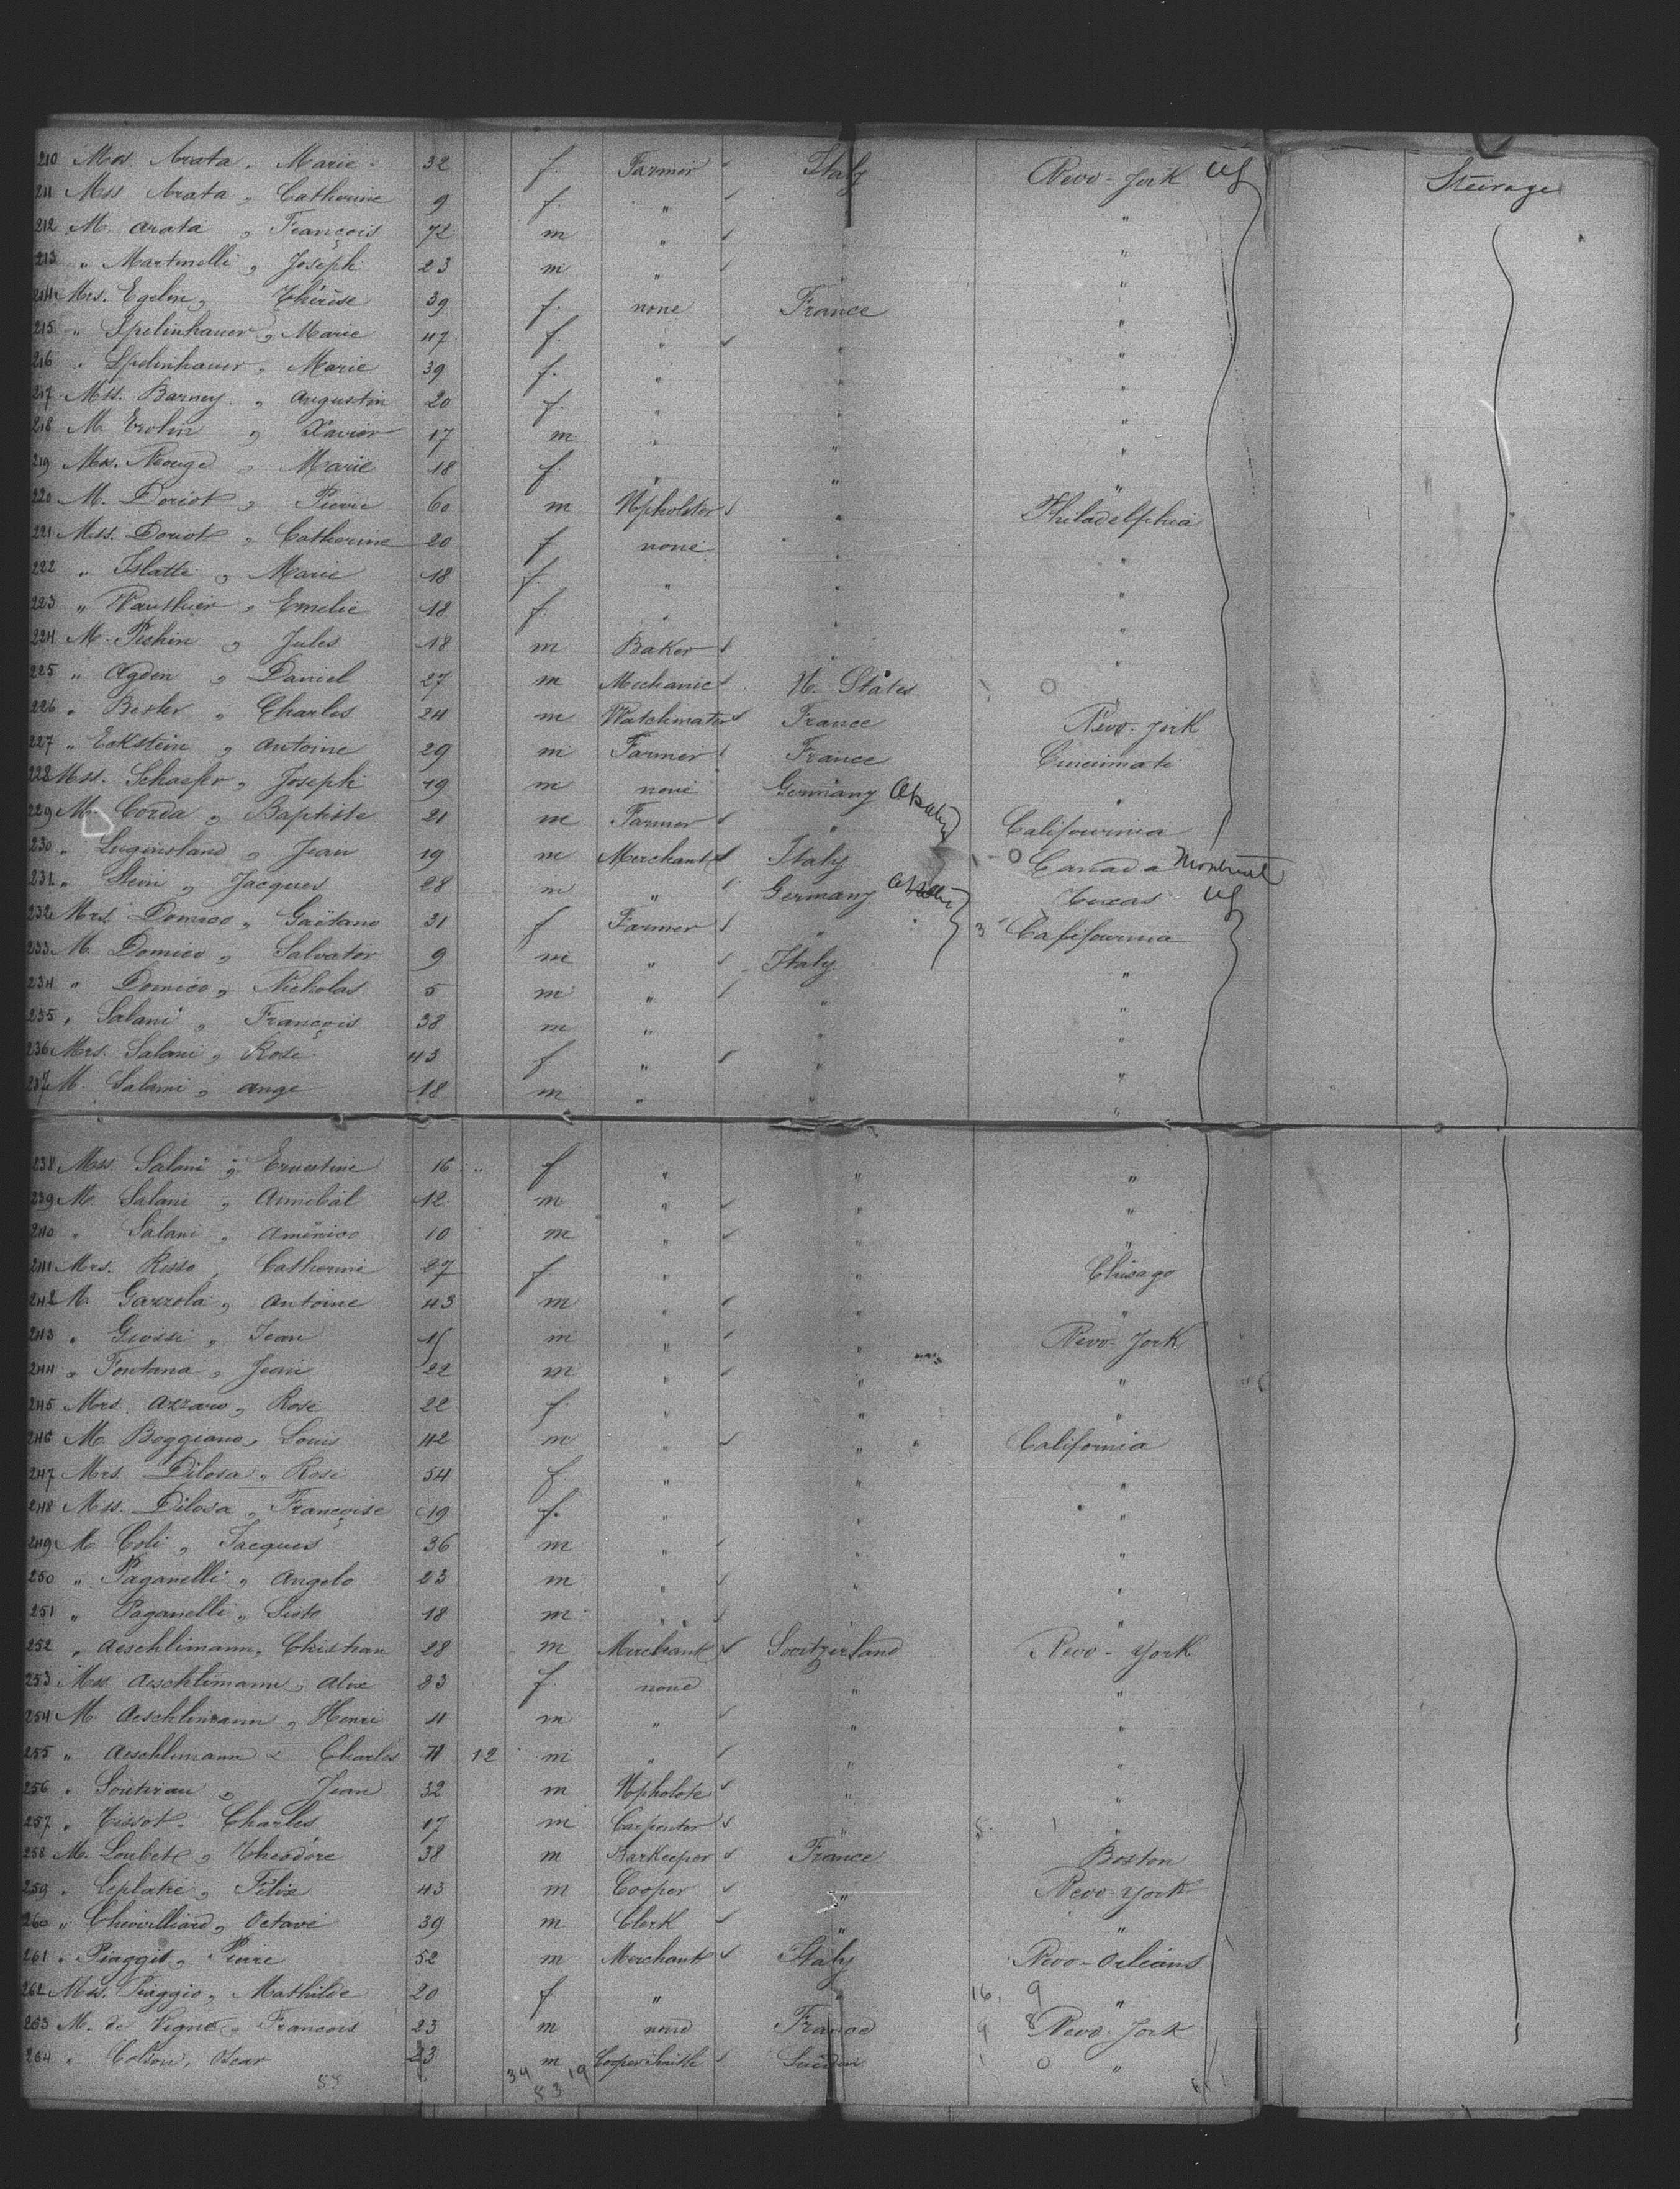 210 Mrs. Arata „ Marie 32 f Farmer Italy New-York Steerage
211 Mss Arata „ Catherine 9 f „ „
212 M. Arata „ François 72 m „ „ „
213 „ Martinelli „ Joseph 23 m „ „ „
214 Mrs. Egelin „ Thérèse 39 f. none France „
215 „ Spelinhauer „ Marie 47 f. „ „ „
216 „ Spelinhauer „ Marie 39 f. „ „ „
217 Mss. Barney „ Augustin 20 f. „ „ „
218 M. Erolin „ Xavier 17 m „ „ „
219 Mss. Nouge „ Marie 18 f. „ „ „
220 M. Doriot „ Pierre 60 m Upholster „ Philadelphia
221 Mss. Doriot „ Catherine 20 f none „ „
222 „ Islatte „ Marie 18 f „ „ „
223 „ Vauthier „ Emelie 18 f. „ „ „
224 M. Peshin „ Jules 18 m Baker „ „
225 „ Agden „ Daniel 27 m Mechanic U. States O
226 „ Bester „ Charles 24 m Watchmater France New-York
227 „ Eckstein „ Antoine 29 m Farmer France Cincinnati
228 Mss. Schaefer „ Joseph 19 m none Germany „
229 M. Corda „ Baptiste 21 m Farmer „ Califournia
230 „ Luginsland „ Jean 19 m Merchant Italy O Canada Montreal
231 „ Stein „ Jacques 28 m „ Germany Texas
232 Mrs Domico „ Gaëtano 31 f Farmer „ 3 Califournia
233 M. Domico „ Salvator 9 m „ Italy „
234 „ Domico „ Nicholas 5 m „ „ „
235 „ Salani „ François 38 m „ „ „
236 Mrs. Salani „ Rose 43 f „ „ „
237 M. Salani „ Ange 18 m „ „ „
238 Mss. Salani „ Ernestine 16 f „ „ „
239 M. Salani „ Annibal 12 m „ „ „
240 „ Salani „ Américo 10 m „ „ „
241 Mrs. Risso „ Catherine 27 f „ „ Chicago
242 M. Gazzola „ Antoine 43 m „ „ „
243 „ Giossi „ Jean m „ „ New-York
244 „ Fontana „ Jean 22 m „ „ „
245 Mrs. Azzaro „ Rose 22 f. „ „ „
246 M. Boggiano „ Louis 42 m „ „ California
247 Mrs. Dilosa „ Rose 54 f „ „ „
248 Mss. Dilosa „ Françoise 19 f. „ „ „
249 M. Coli „ Jacques 36 m „ „ „
250 „ Paganelli „ Angelo 23 m „ „ „
251 „ Paganelli „ Sisto 18 m „ „ „
252 „ Aeschlimann „ Christian 28 m Merchant Switzerland New-York
253 Mss Aeschlimann „ Alix 23 f. none „ „
254 M. Aeschlimann „ Henri 4 m „ „ „
255 „ Aeschlimann „ Charles 12 m „ „ „
256 „ Jean 32 m Upholste „ „
257 „ Tissot „ Charles 17 m Carpenter „ 5 1 „
258 M. Loubet „ Théodore 38 m Barkeeper France Boston
259 „ Leplatre „ Félix 43 m Cooper „ New-York
260 „ Chevilliard „ Octave 39 m Clerk „ „
261 „ Piaggio „ Pierre 52 m Merchant Italy New-Orleans
262 Mss. Piaggio „ Mathilde 20 f „ „ 16. 9 „
263 M. de Vigne „ François 23 m none France 9 8 New-York
264 „ Colson „ Oscar 23 m Cooper Smith Sueden 1 0 „
34 19
53